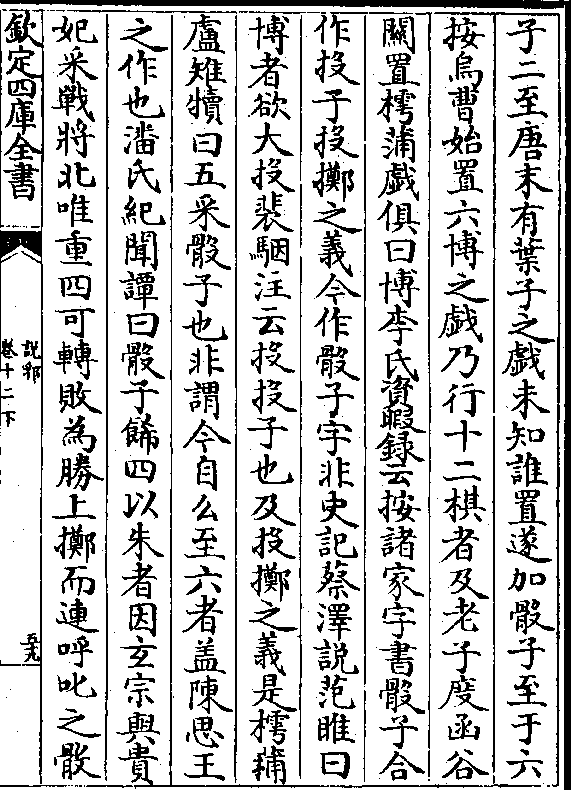 子二至唐末有葉子之戯未知誰置遂加骰子至于六
按烏曹始置六博之戯乃行十二棋者及老子度函谷
關置樗蒲戯俱曰博李氏資暇録云按諸家字書骰子合
作投子投擲之義今作骰子字非史記蔡澤説范睢曰
博者欲大投裴駰注云投投子也及投擲之義是樗蒱
盧雉犢曰五采骰子也非謂今自么至六者盖陳思王
之作也潘氏紀聞譚曰骰子餙四以朱者因玄宗與貴
妃采戰將北唯重四可轉敗為勝上擲而連呼叱之骰
欽定四庫全書
説郛
卷十二下
五九